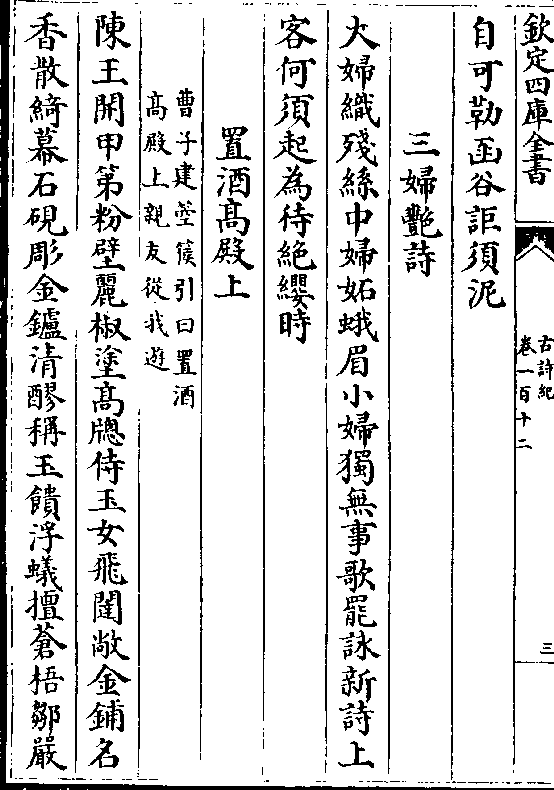 欽定四庫全書
古詩紀
卷一百十二
三
自可勒函谷詎須泥
三婦艶詩
大婦織殘絲中婦妬蛾眉小婦獨無事歌罷詠新詩上
客何須起為待絶纓時
置酒髙殿上
曹子建箜篌引曰置酒
髙殿上親友從我遊
陳王開甲第粉壁麗椒塗髙牕侍玉女飛闥敞金鋪名
香散綺幕石硯彫金鑪清醪稱玉饋浮蟻擅蒼梧鄒嚴